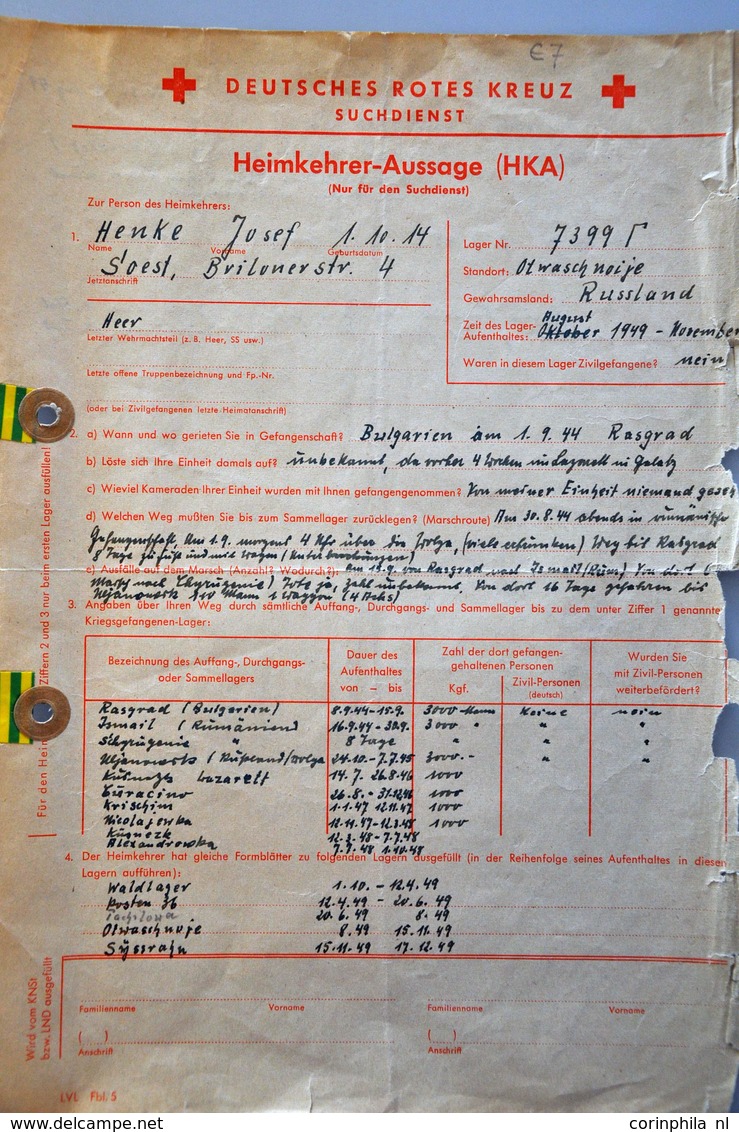 €7
DEUTSCHES ROTES KREUZ
SUCHDIENST
Heimkehrer-Aussage (HKA)
(Nur für den Suchdienst)
Zur Person des Heimkehrers:
1. Henke Josef 1.10.14
Name Vorname Geburtsdatum
Soest, Brilonerstr. 4
Jetztanschrift
Heer
Letzter Wehrmachtsteil (z. B. Heer, SS usw.)
Letzte offene Truppenbezeichnung und Fp.-Nr.
(oder bei Zivilgefangenen letzte Heimatanschrift)
Lager Nr. 7399 Γ
Standort: Otwaschnoije
Gewahrsamsland: Russland
August
Zeit des Lager-
Aufenthaltes: Oktober 1949 - November
Waren in diesem Lager Zivilgefangene? nein
2. a) Wann und wo gerieten Sie in Gefangenschaft? Bulgarien am 1.9.44 Rasgrad
b) Löste sich Ihre Einheit damals auf? unbekannt, da vorher 4 Wochen im Lazarett in Galatz
c) Wieviel Kameraden Ihrer Einheit wurden mit Ihnen gefangengenommen? Von meiner Einheit niemand gesehen
d) Welchen Weg mußten Sie bis zum Sammellager zurücklegen? (Marschroute) Am 30.8.44 abends in rumänische
Gefangenschaft, Am 1.9. morgens 4 Uhr über die (viele ertrunken) Weg bis Rasgrad
8 Tage zu Fuß und mit Wagen (Unterbrechungen)
e) Ausfälle auf dem Marsch (Anzahl? Wodurch?): am 15.9. von Rasgrad nach Ismail (Rum) Von dort 6
Marsch nach Tote ja, Zahl unbekannt. Von dort 16 Tage gefahren bis
Uljanowsk Mann 1 Waggon (4 Achs)
3. Angaben über Ihren Weg durch sämtliche Auffang-, Durchgangs- und Sammellager bis zu dem unter Ziffer 1 genannten
Kriegsgefangenen-Lager:
Bezeichnung des Auffang-, Durchgangs-
oder Sammellagers
Dauer des
Aufenthaltes
von - bis
Zahl der dort gefangen-
gehaltenen Personen
Kgf. Zivil-Personen
(deutsch)
Wurden Sie
mit Zivil-Personen
weiterbefördert?
Rasgrad (Bulgarien) 8.9.44-15.9. 3000 Mann keine nein
Ismail (Rumänien) 16.9.44-30.9. 3000 " " "
" 8 Tage " " "
Uljanowsk (Rußland/Wolga 24.10.-7.7.45 3000.- " "
Kusnezk Lazarett 14.7. 26.8.46 1000
Curacino 26.8.-31.12.46 1000
Krischim 1.1.47 12.11.47 1000
Nicolajewka 12.11.47-12.3.48 1000
Kusnezk 12.3.48-7.7.48
Alexandrowka 7.7.48 1.10.48
4. Der Heimkehrer hat gleiche Formblätter zu folgenden Lagern ausgefüllt (in der Reihenfolge seines Aufenthaltes in diesen
Lagern aufführen):
Waldlager 1.10.-12.4.49
Posten 36 12.4.49 - 20.6.49
20.6.49 8.49
Otwaschnoje 8.49 15.11.49
Syssrahn 15.11.49 17.12.49
Familienname Vorname Familienname Vorname
( ) ( )
Anschrift Anschrift
Für den Heim Ziffern 2 und 3 nur beim ersten Lager ausfüllen!
Wird vom KNSt
bzw. LND ausgefüllt
LVL Fbl. 5
corinphila nl